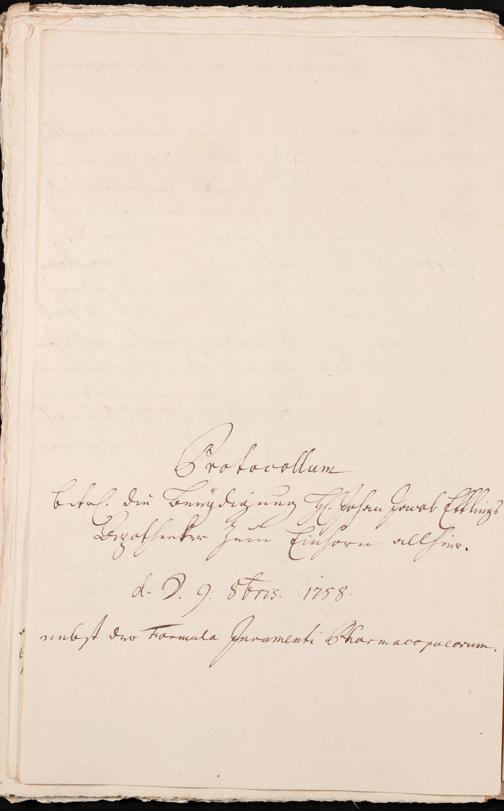 Protocollum
betr. die Beeydigung H. Johan Jacob Ettlings
Apotheker zum Einhorn allhier.
d. D. 9. 8bris. 1758.
nebst der Formula Juramenti Pharmacopaeorum.